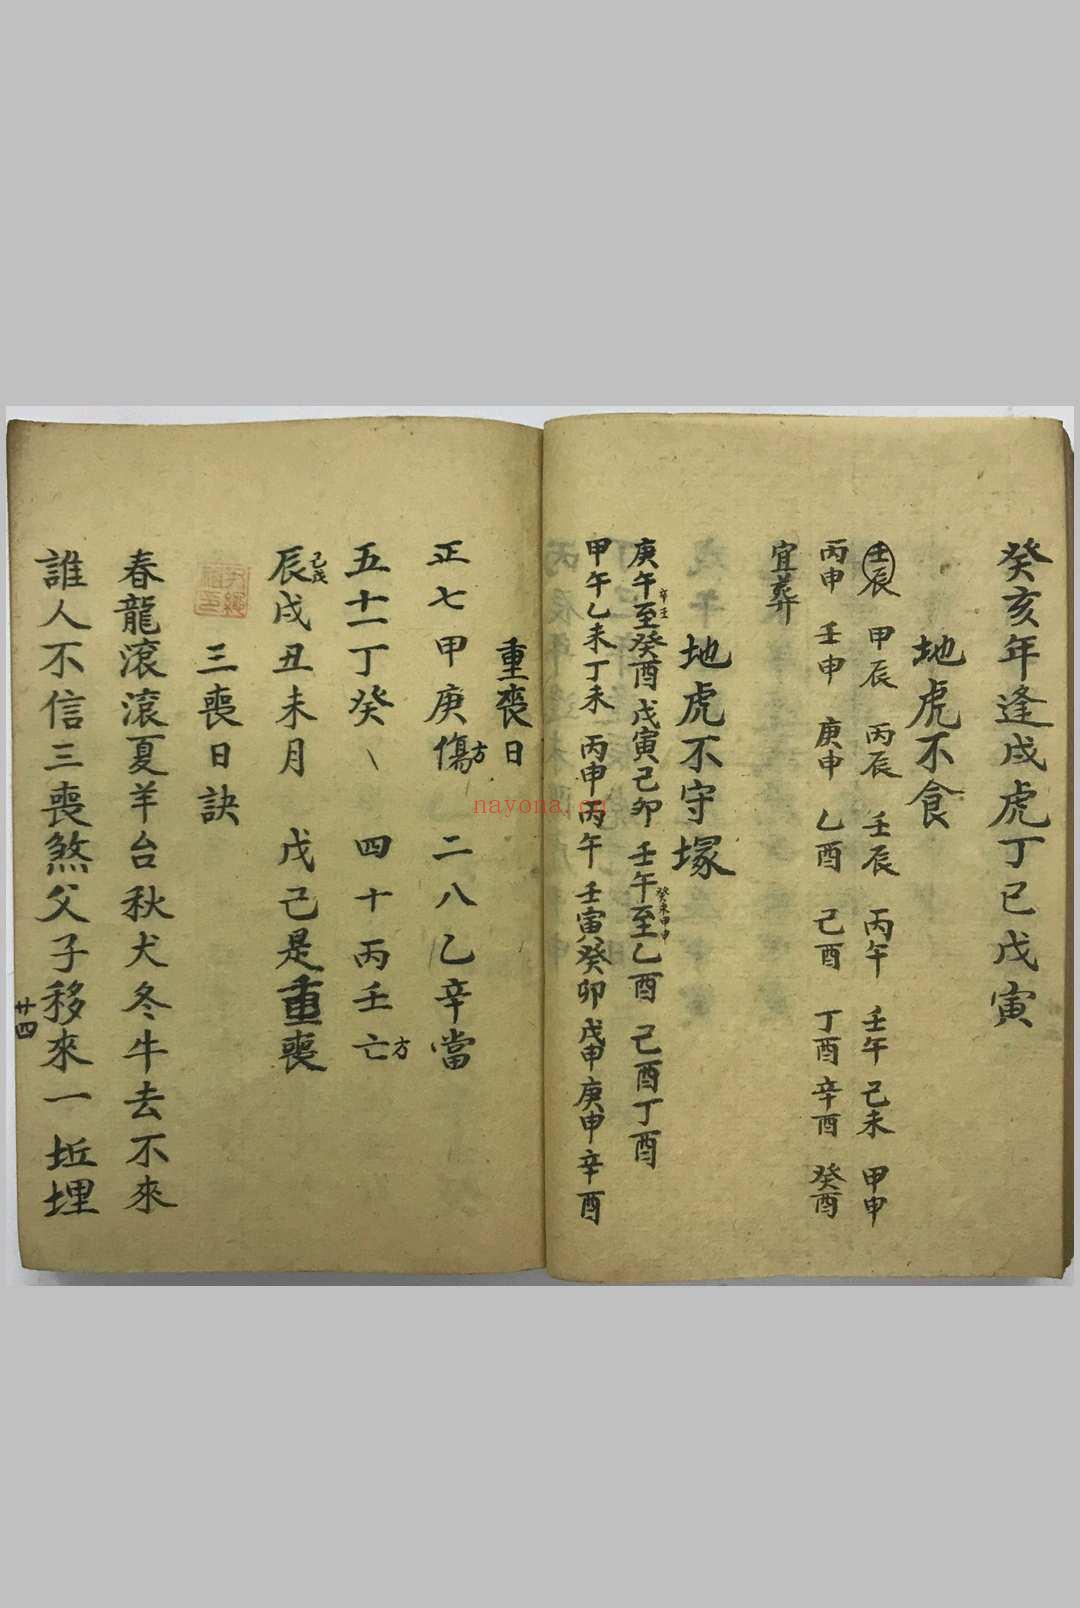 癸亥年逢戍虎丁巳戊寅
地虎不食
壬辰 甲辰 丙辰 壬辰 丙午 壬午 己未 甲申
丙申 壬申 庚申 乙酉 己酉 丁酉 辛酉 癸酉
宜葬
地虎不守塚
庚午至癸酉 戊寅己卯 壬午至乙酉 己酉丁酉
辛壬
癸未甲申
甲午乙未丁未 丙申丙午 壬寅癸卯 戊申庚申辛酉
重喪日
正七甲庚傷方 二八乙辛當
五十一丁癸、 四十丙壬亡方
辰戌丑未月 戊己是重喪
己戊
三喪日訣
春龍滾滾夏羊台秋犬冬牛去不來
誰人不信三喪煞父子移來一坵埋
廿四
nayona.cn